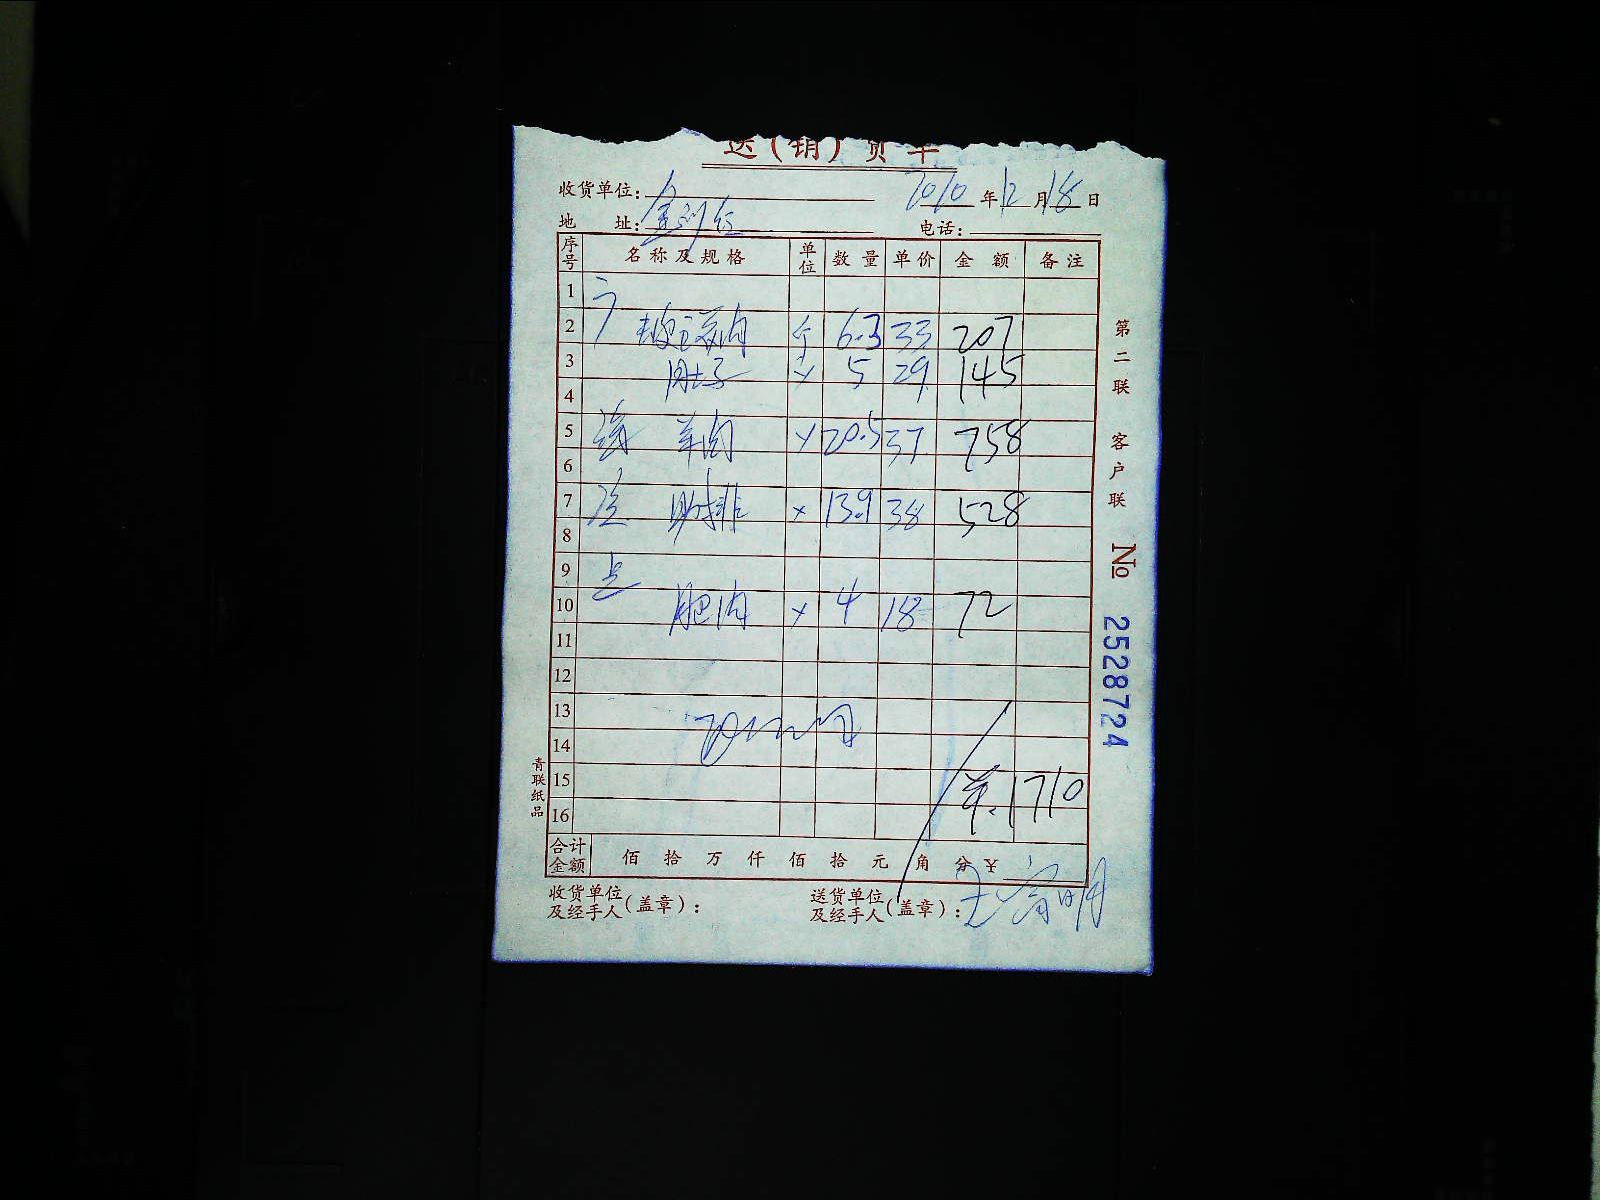 送(销)货单
收货单位: 2010年12月18日
地 址: 电话:
序号 名称及规格 单位 数量 单价 金额 备注
1
2 肉 斤 6.3 33 207
3 肚子 5 29 145
4
5 羊肉 20.5 37 758
6
7 肋排 13.9 38 528
8
9
10 肥肉 4 18 72
11
12
13
14
15 1710
16
合计金额 佰 拾 万 仟 佰 拾 元 角 分 ¥
收货单位及经手人(盖章): 送货单位及经手人(盖章):
第二联 客户联 № 2528724
青联纸品